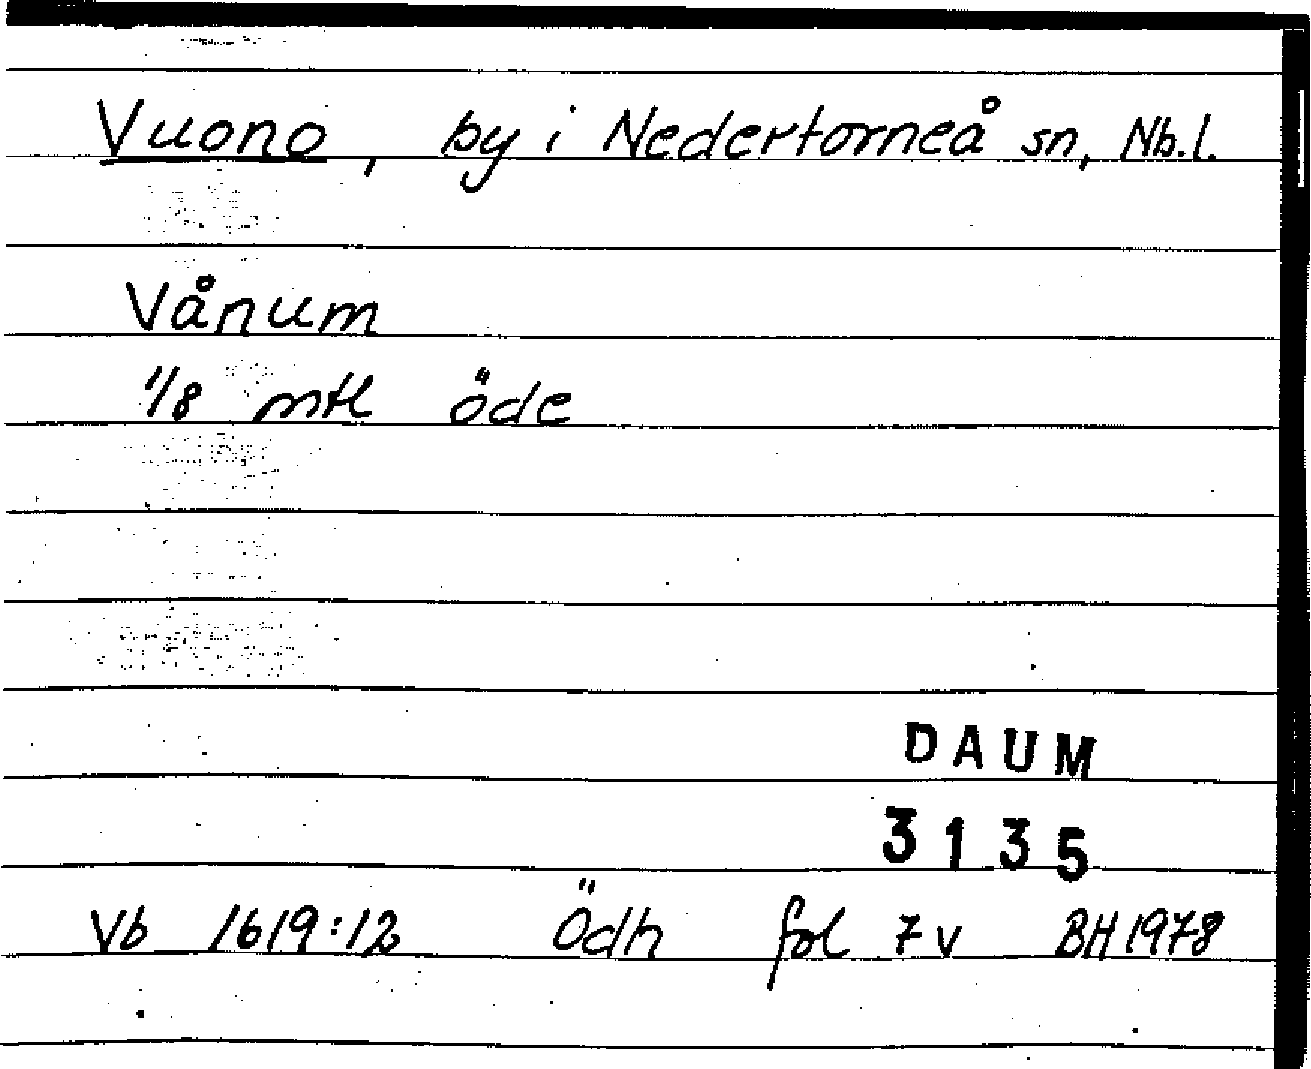 Vuono, by i Nedertorneå sn, Nb.l.
Vånum
1/8 mtl öde
DAUM
3135
Vb 1619:12 Ödh fol 7v BH 1978